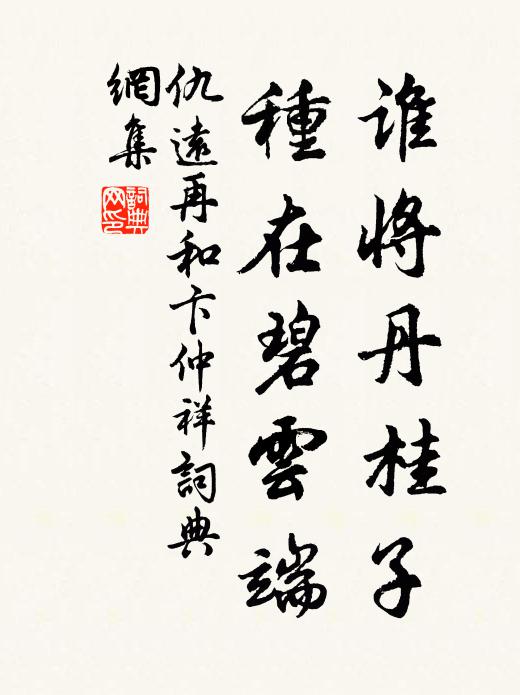 谁將丹桂子
種在碧雲端
仇遠再和卞仲祥詞典
網集
詞典网印